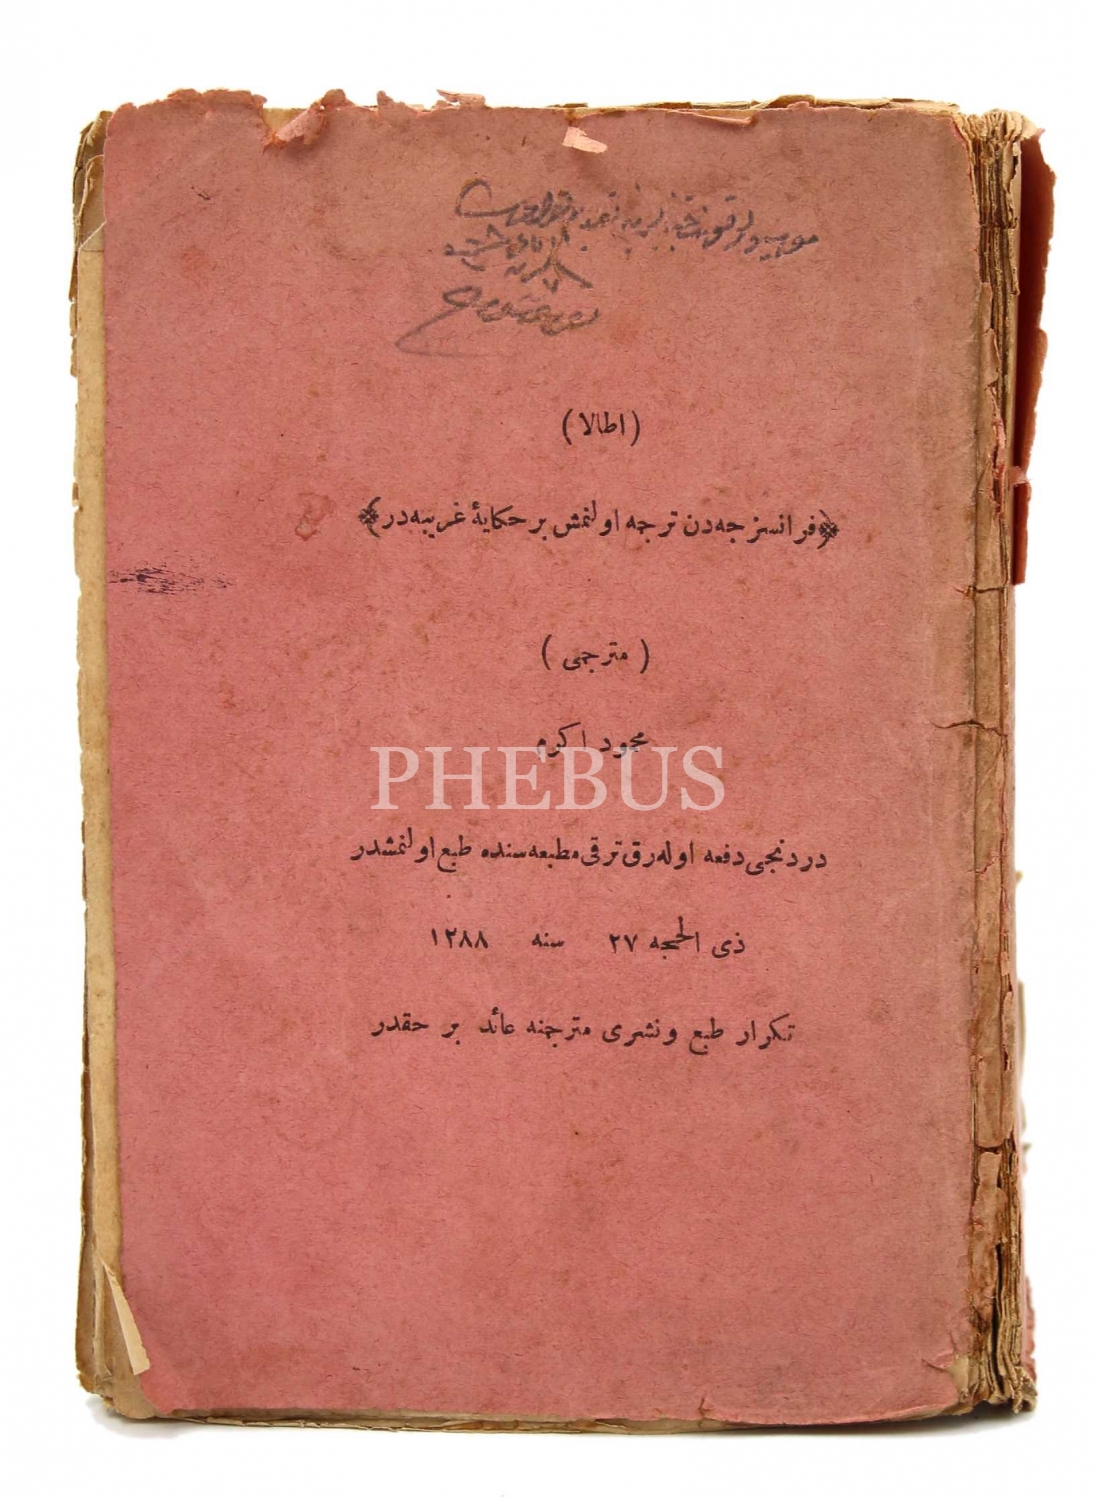 (اطالا)
﴿فرانسزجه‌دن ترجمه اولنمش بر حكایۀ غریبه‌در﴾
( مترجمی )
محمود اكرم
PHEBUS
دردنجی دفعه اوله‌رق ترقی مطبعه‌سنده طبع اولنمشدر
ذی الحجه ٢٧ سنه ١٢٨٨
تكرار طبع ونشری مترجمنه عائد بر حقدر